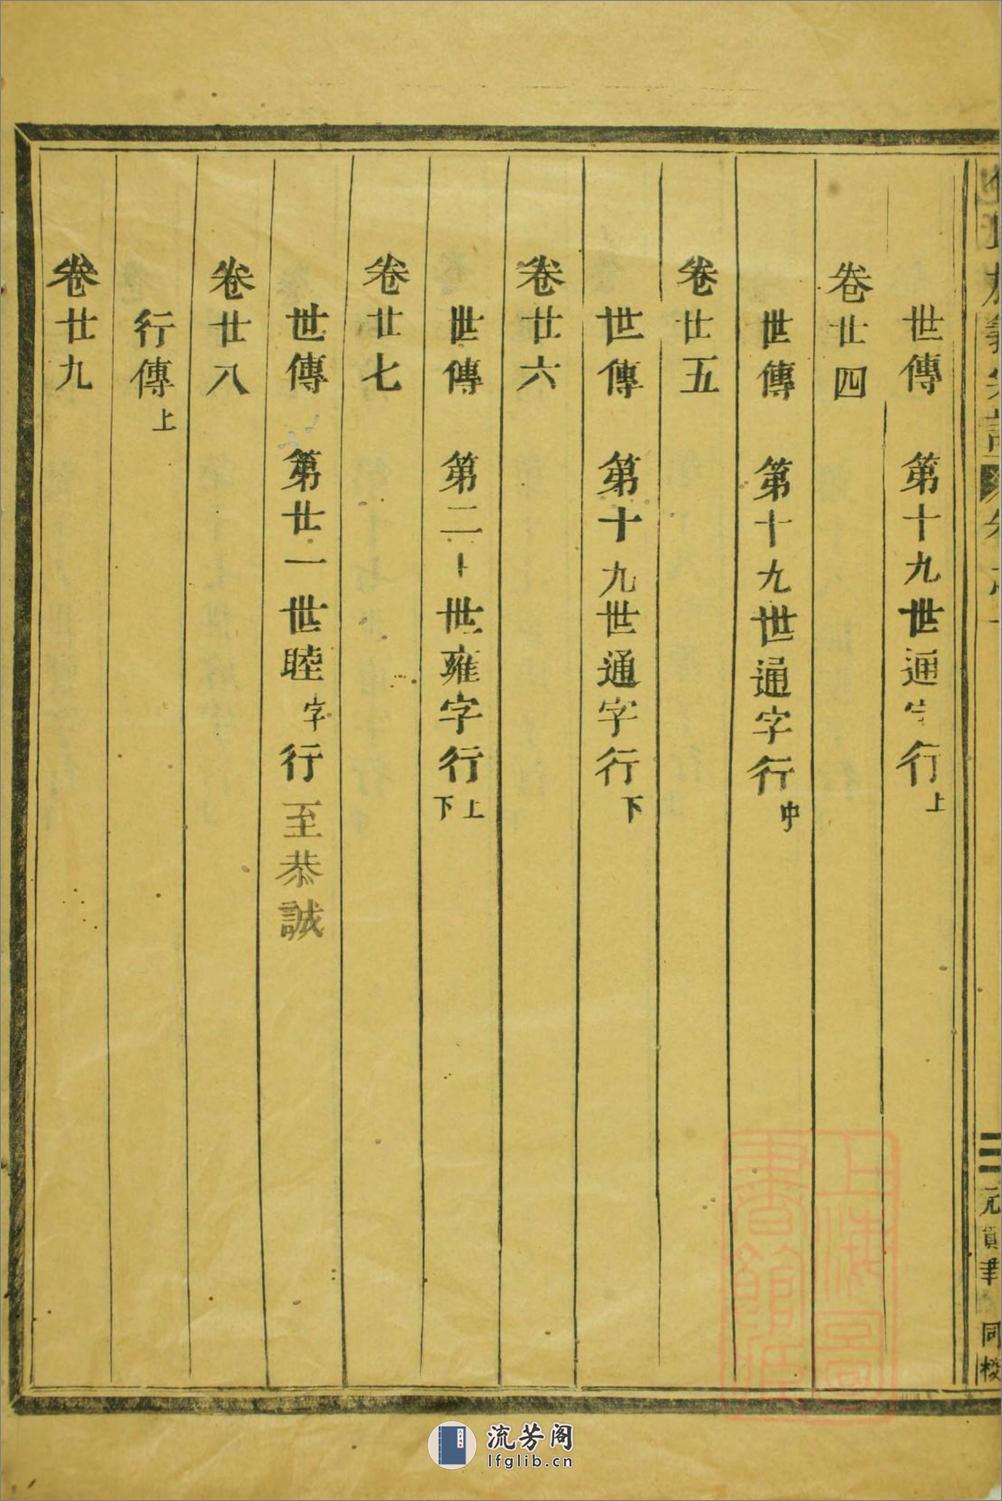 世傳 第十九世通字行上
卷廿四
世傳 第十九世通字行中
卷廿五
世傳 第十九世通字行下
卷廿六
世傳 第二十世雍字行上下
卷廿七
世傳 第廿一世睦字行至恭誠
卷廿八
行傳上
卷廿九
二 元 同校
上海圖書館藏
流芳阁
lfglib.cn